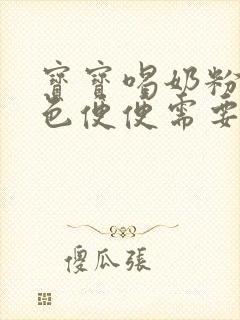 寶寶喝奶粉
色便便需要
傻瓜張